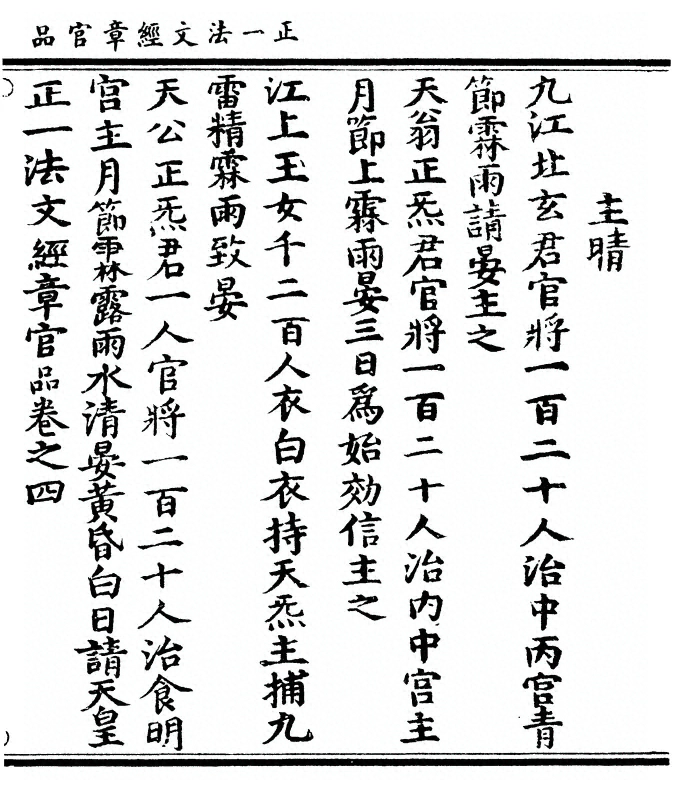 正一法文經章官品
主晴
九江北玄君官將一百二十人治中丙宮青
節霖雨請晏主之
天翁正炁君官將一百二十人治內中宮主
月節上霖雨晏三日為始効信主之
江上玉女千二百人衣白衣持天炁主捕九
雷精霖雨致晏
天公正炁君一人官將一百二十人治食明
宮主月節霖露雨水清晏黃昏白日請天皇
正一法文經章官品卷之四